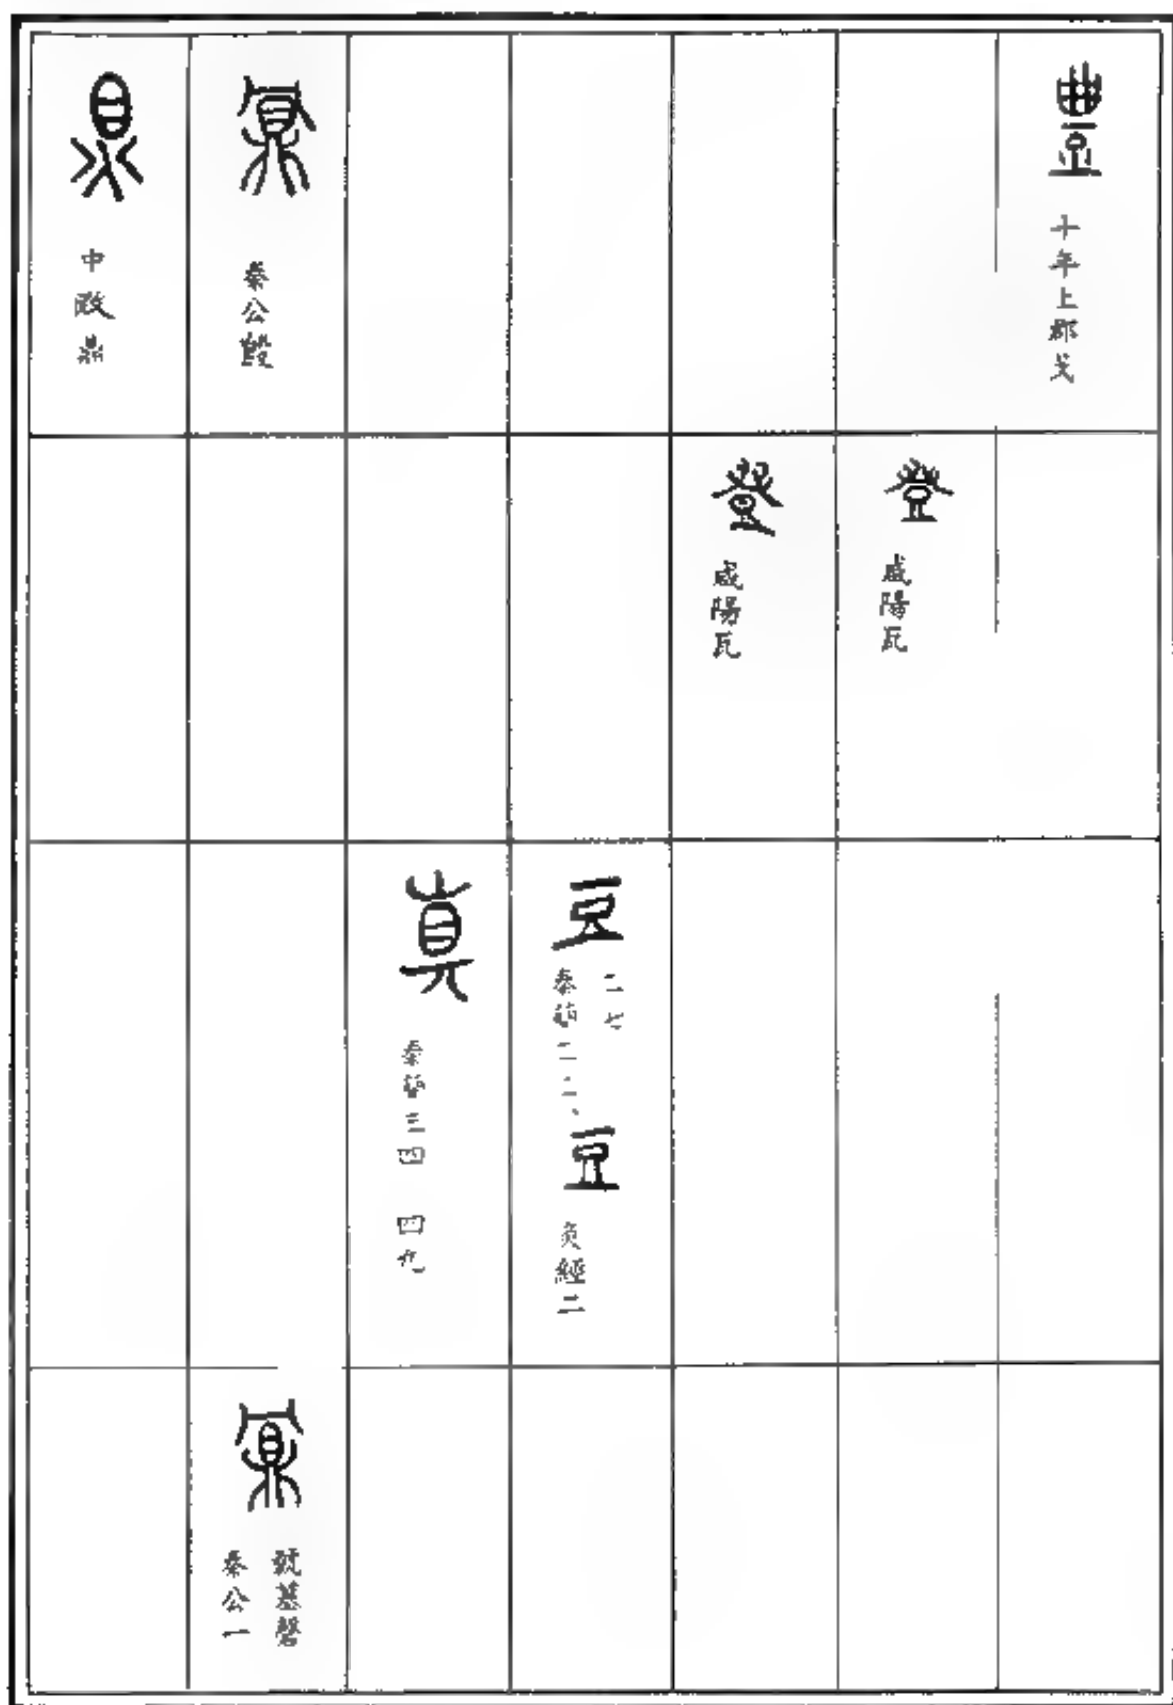 豊
十年上郡戈
登
咸陽瓦
登
咸陽瓦
豆
二七
秦簡二二
豆
灸經二
真
秦簡三四 四九
秦公𣪘
號墓磬
秦公一
鼎
中㪅鼎